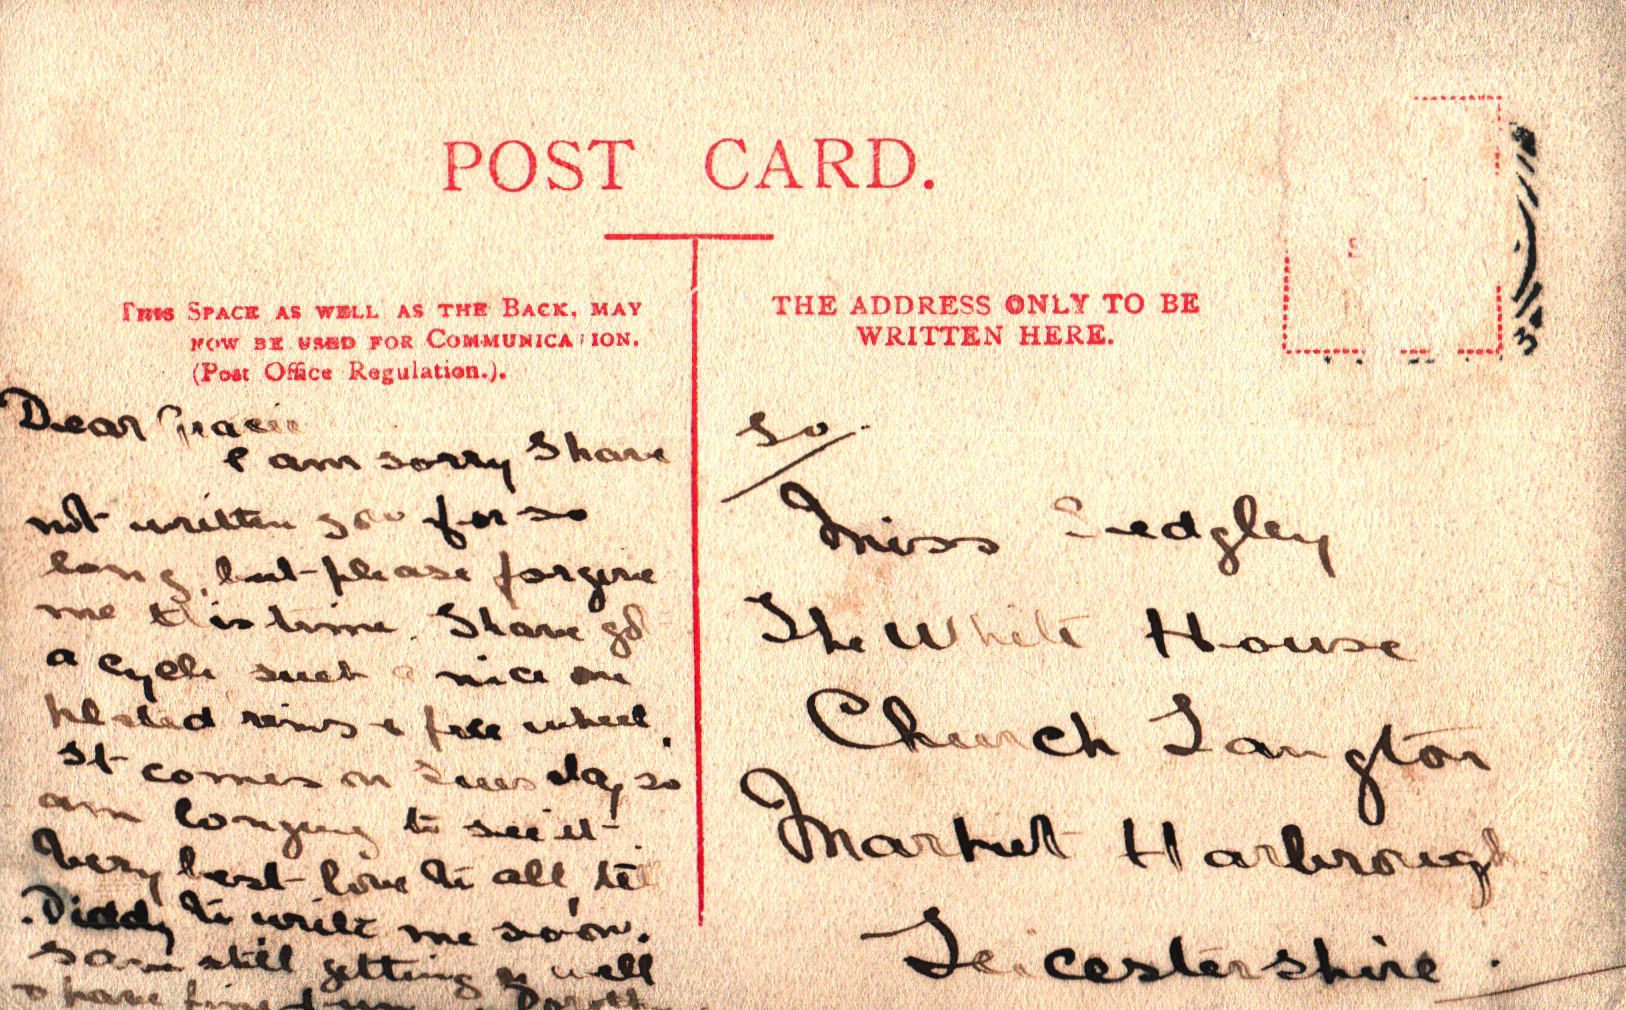 POST CARD.
THIS SPACE AS WELL AS THE BACK, MAY
NOW BE USED FOR COMMUNICATION.
(Post Office Regulation.).
THE ADDRESS ONLY TO BE
WRITTEN HERE.
Dear Gracie
I am sorry I have
not written you for so
long, but please forgive
me this time. I have got
a cycle such a nice one
plated rims & free wheel.
It comes on Tuesday, so
am longing to see it.
Very best love to all, tell
Diddy to write me soon.
I am still getting on well
& have
To
Miss Sedgley
The White House
Church Langton
Market Harbrough
Leicestershire.